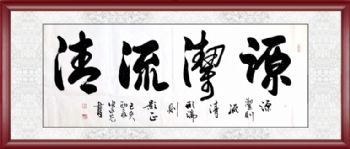 源潔流清
源潔則流清形端則影正
書